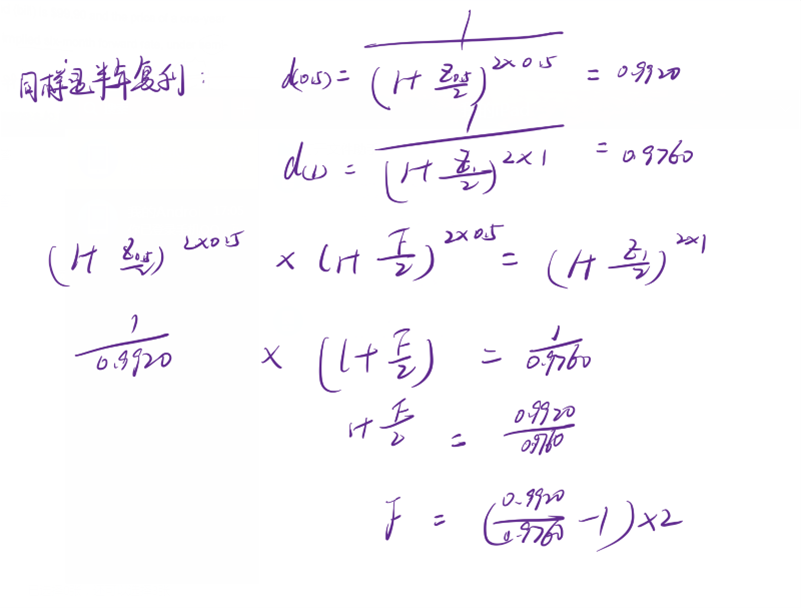 同样是半年复利: d(0.5) = 1/(1+Z0.5/2)^2×0.5 = 0.9920
d(1) = 1/(1+Z1/2)^2×1 = 0.9760
(1+Z0.5/2)^2×0.5 × (1+F/2)^2×0.5 = (1+Z1/2)^2×1
1/0.9920 × (1+F/2) = 1/0.9760
1+F/2 = 0.9920/0.9760
F = (0.9920/0.9760 - 1)×2